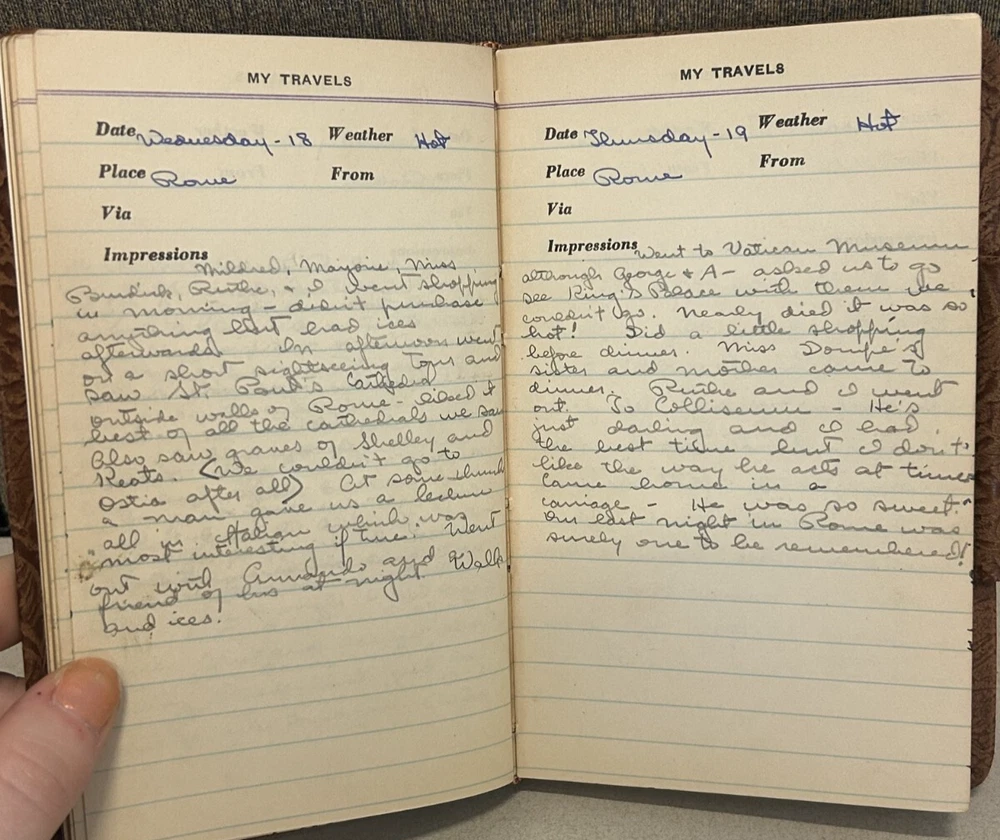 MY TRAVELS
Date Wednesday - 18 Weather Hot
Place Rome From
Via
Impressions Mildred, Marjorie, Miss
Burdick, Ruthe, & I went shopping
in morning - didn't purchase
anything but had ices
afterwards. In afternoon went
on a short sightseeing tour and
saw St. Paul's Cathedral
outside walls of Rome - liked it
best of all the cathedrals we saw
Also saw graves of Shelley and
Keats. (We couldn't go to
Ostia after all) At some church
a man gave us a lecture
all in Italian which was
most interesting if true. Went
out with Armando and
friend of his at night. Walk
and ices.
MY TRAVELS
Date Thursday - 19 Weather Hot
Place Rome From
Via
Impressions Went to Vatican Museum
although George & A - asked us to go
see King's Palace with them we
couldn't go. Nearly died it was so
hot! Did a little shopping
before dinner. Miss
sister and mother came to
dinner. Ruthe and I went
out. To Colliseum - He's
just darling and I had
the best time but I don't
like the way he acts at times
Came home in a
carriage - He was so sweet.
Our last night in Rome was
surely one to be remembered!